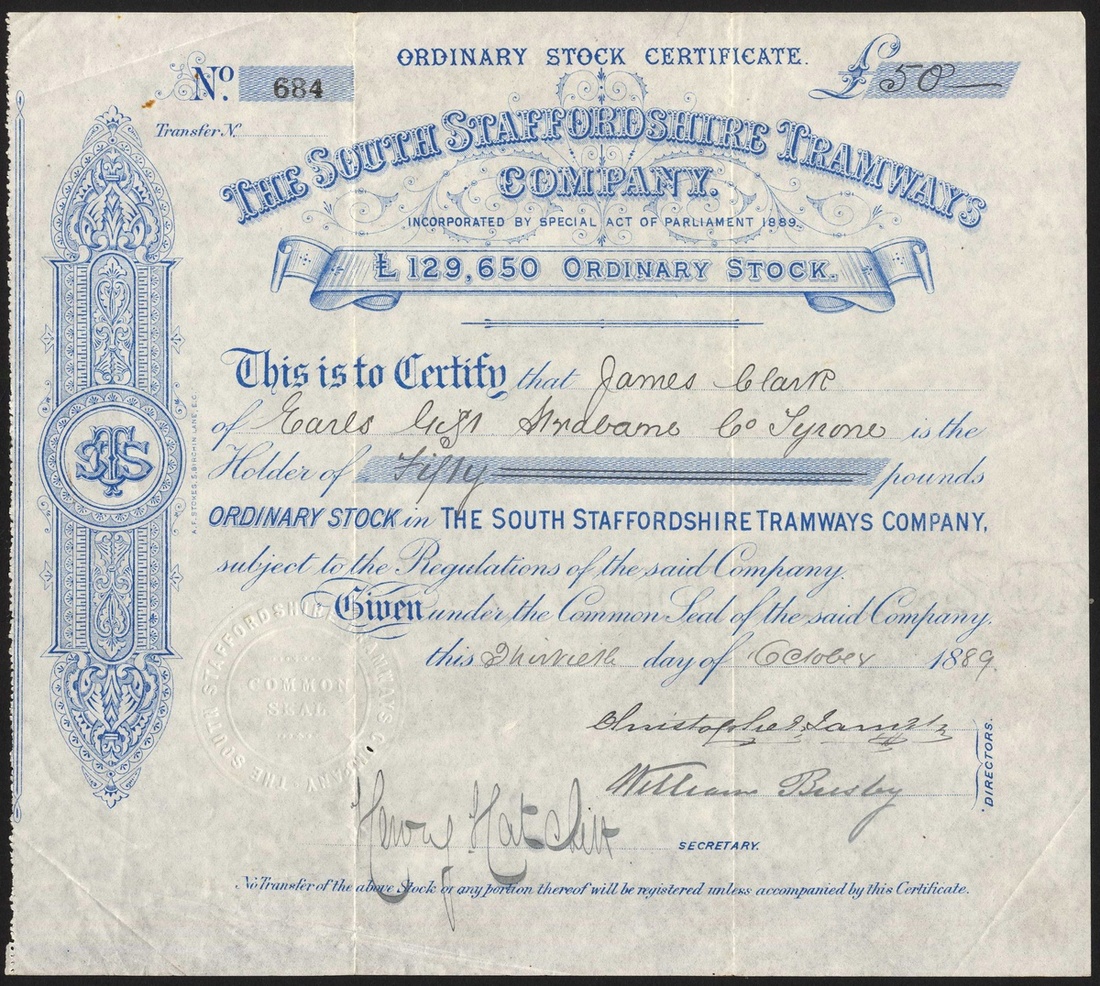 ORDINARY STOCK CERTIFICATE.
No. 684
£50
Transfer No.
THE SOUTH STAFFORDSHIRE TRAMWAYS
COMPANY.
INCORPORATED BY SPECIAL ACT OF PARLIAMENT 1889.
£129,650 ORDINARY STOCK.
This is to Certify that James Clark
of Earls Gift Strabane Co Tyrone is the
Holder of Fifty pounds
ORDINARY STOCK in THE SOUTH STAFFORDSHIRE TRAMWAYS COMPANY,
subject to the Regulations of the said Company.
Given under the Common Seal of the said Company.
this Thirtieth day of October 1889
Christopher
William Busby
DIRECTORS.
Henry SECRETARY.
No Transfer of the above Stock or any portion thereof will be registered unless accompanied by this Certificate.
A. F. STOKES, 5, BIRCHIN LANE, E.C.
STS
THE SOUTH STAFFORDSHIRE TRAMWAYS COMPANY
COMMON
SEAL